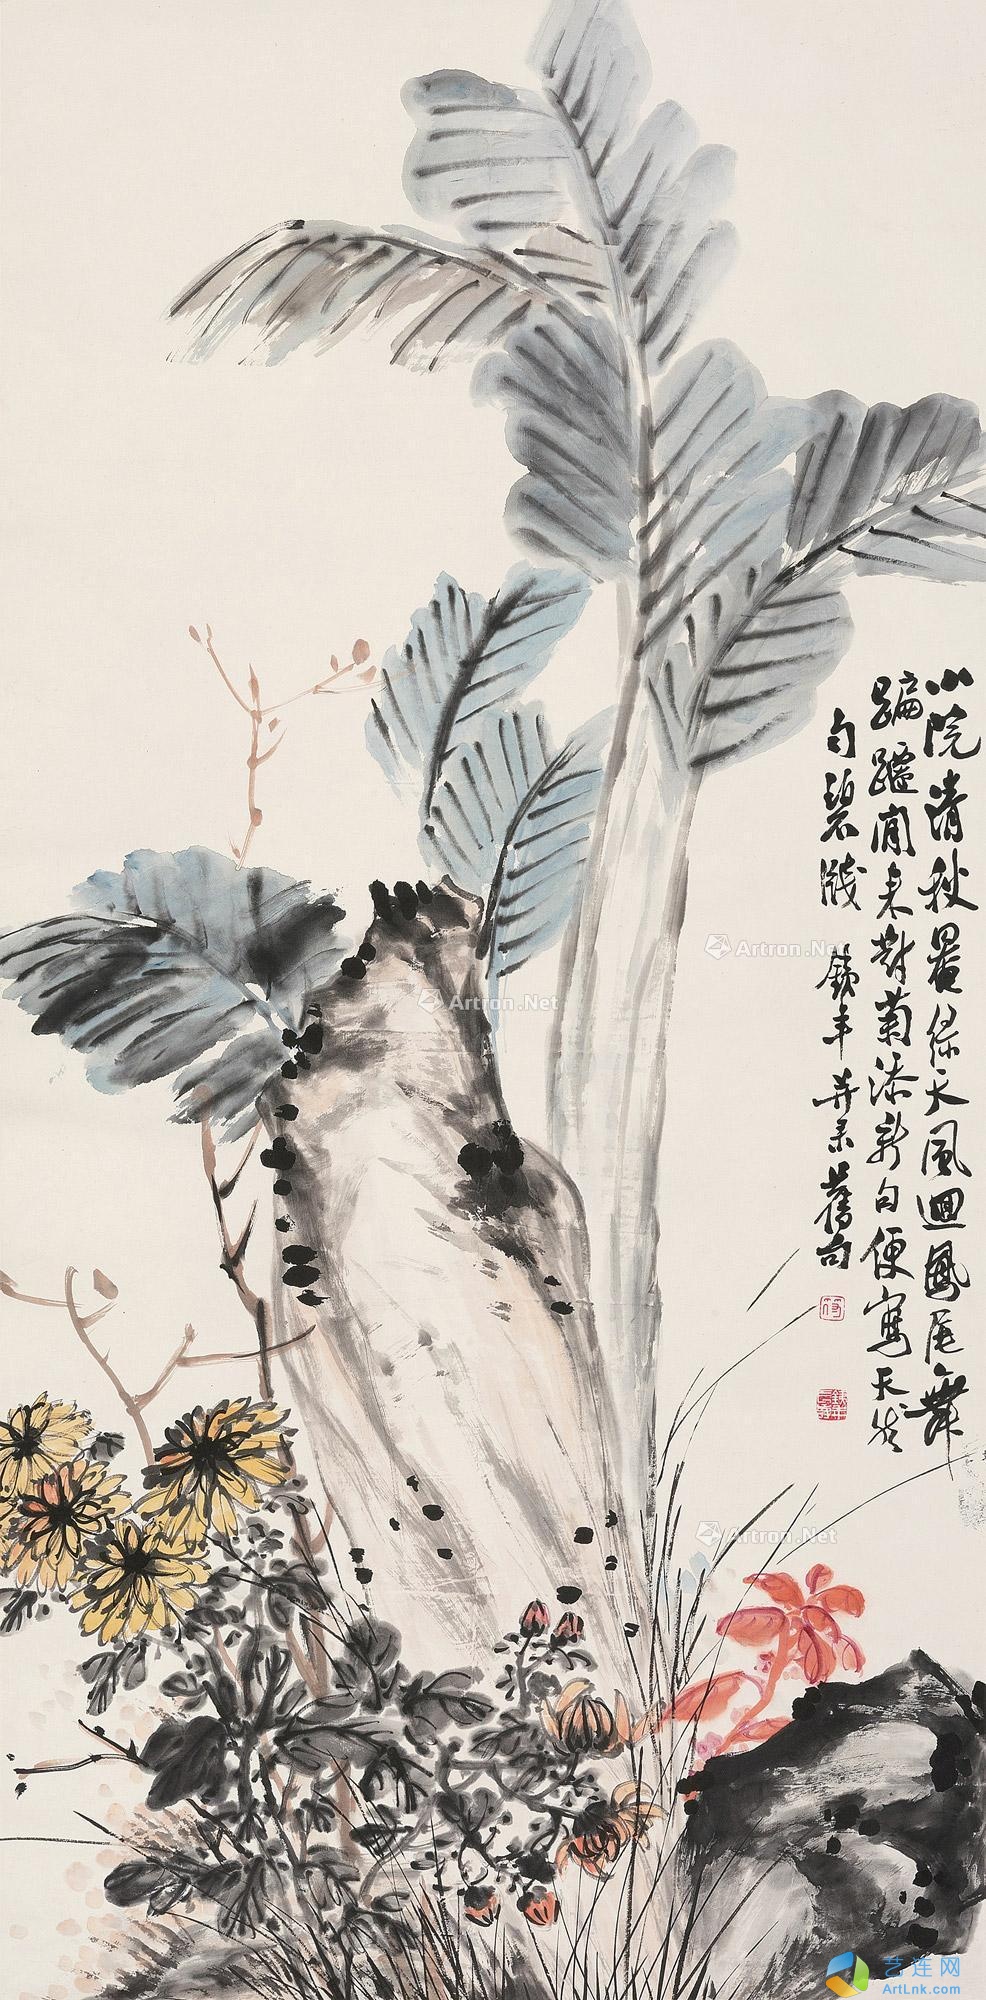 小院清秋最綠天風迴鳳尾舞
蹁躚閒来對菊添新句便寫天然
勻碧牋
鐵年并录舊句
符
Artron.Net
Artron.Net
Artron.Net
艺连网
ArtLnk.com